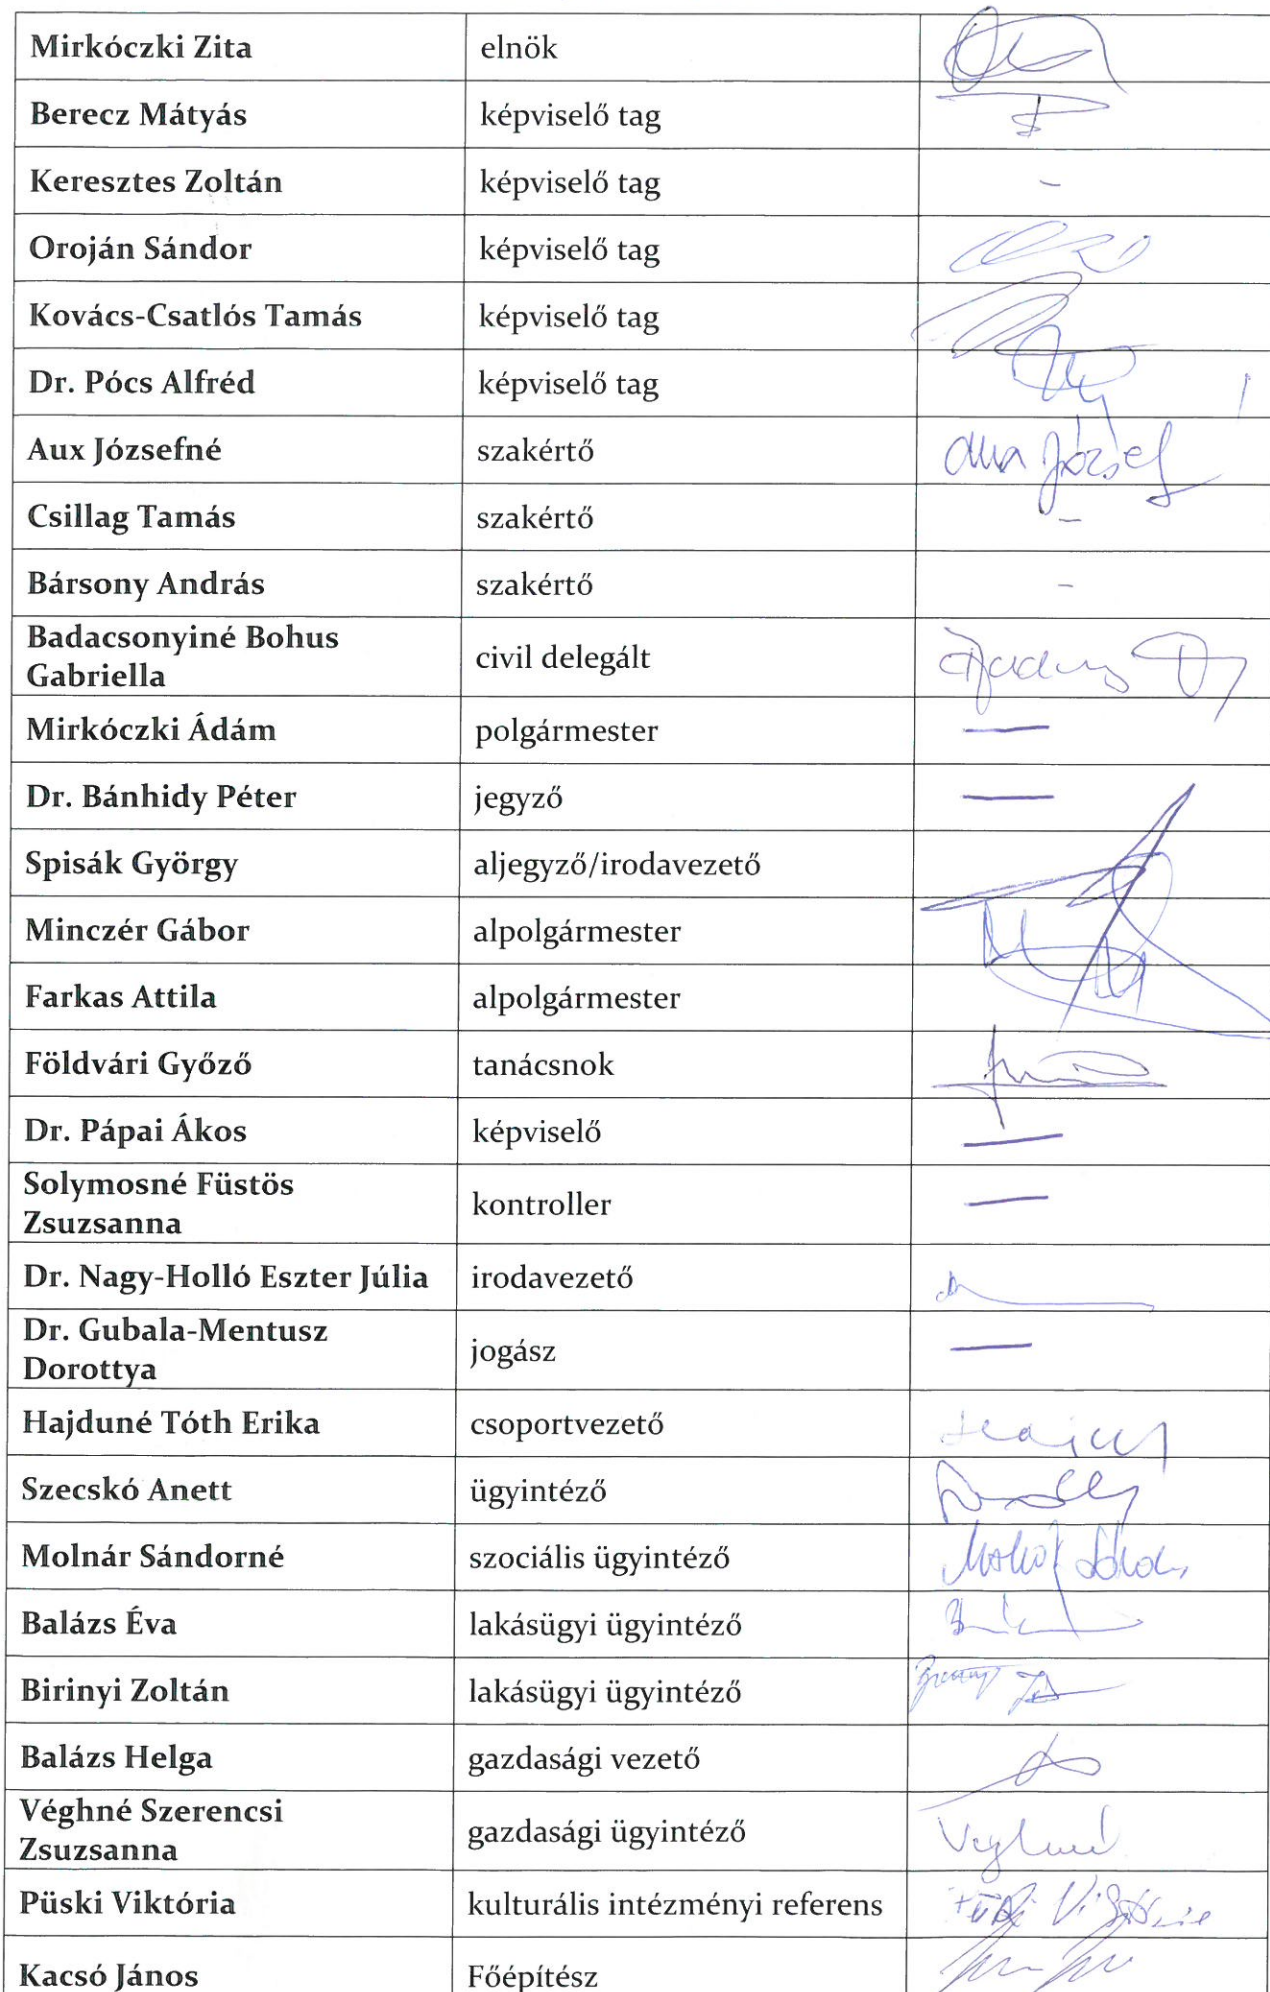 Mirkóczki Zita elnök
Berecz Mátyás képviselő tag
Keresztes Zoltán képviselő tag –
Oroján Sándor képviselő tag
Kovács-Csatlós Tamás képviselő tag
Dr. Pócs Alfréd képviselő tag
Aux Józsefné szakértő
Csillag Tamás szakértő –
Bársony András szakértő –
Badacsonyiné Bohus
Gabriella civil delegált
Mirkóczki Ádám polgármester —
Dr. Bánhidy Péter jegyző —
Spisák György aljegyző/irodavezető
Minczér Gábor alpolgármester
Farkas Attila alpolgármester
Földvári Győző tanácsnok
Dr. Pápai Ákos képviselő —
Solymosné Füstös
Zsuzsanna kontroller —
Dr. Nagy-Holló Eszter Júlia irodavezető
Dr. Gubala-Mentusz
Dorottya jogász —
Hajduné Tóth Erika csoportvezető
Szecskó Anett ügyintéző
Molnár Sándorné szociális ügyintéző
Balázs Éva lakásügyi ügyintéző
Birinyi Zoltán lakásügyi ügyintéző
Balázs Helga gazdasági vezető
Véghné Szerencsi
Zsuzsanna gazdasági ügyintéző
Püski Viktória kulturális intézményi referens
Kacsó János Főépítész